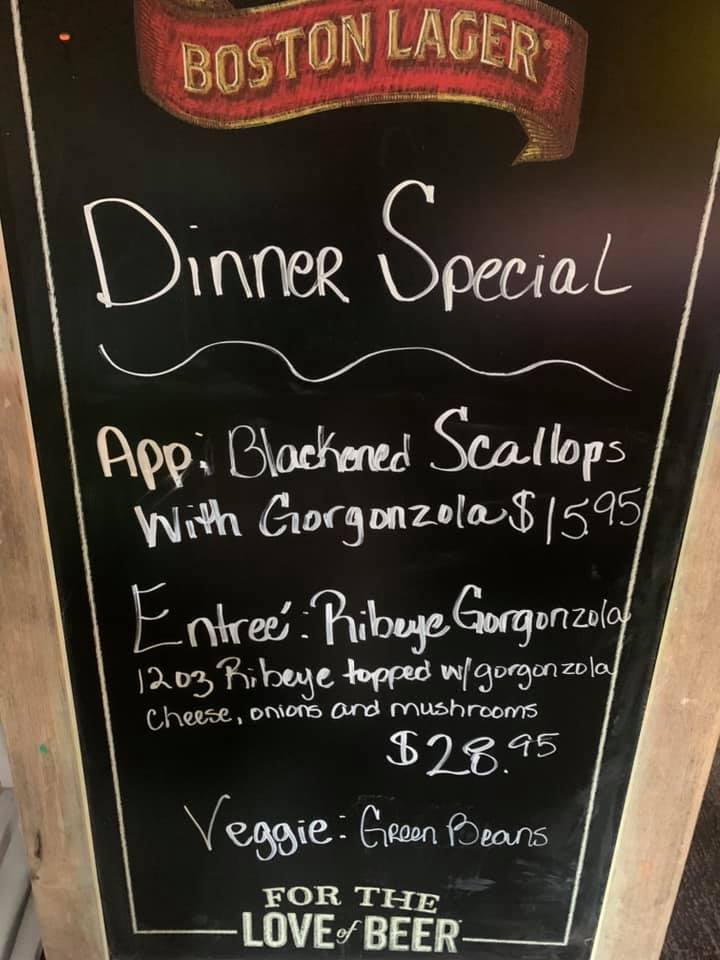 BOSTON LAGER
Dinner Special
App: Blackened Scallops
With Gorgonzola $15.95
Entreé: Ribeye Gorgonzola
12oz Ribeye topped w/gorgonzola
Cheese, onions and mushrooms
$28.95
Veggie: Green Beans
FOR THE
LOVE of BEER